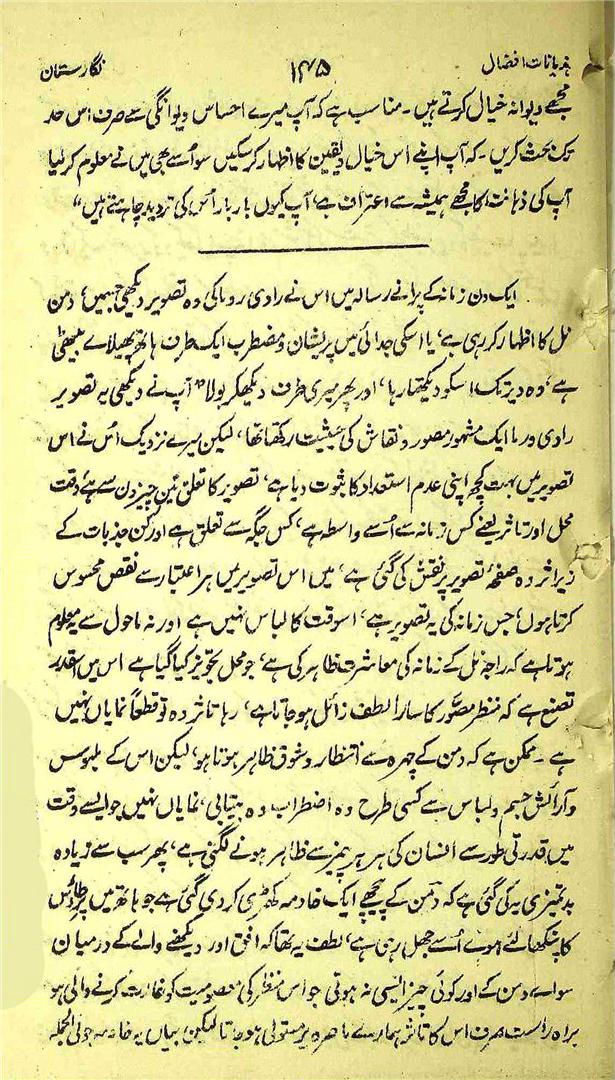 ہذیانات افضال ۱۴۵ نگارستان
مجھے دیوانہ خیال کرتے ہیں ۔ مناسب ہے کہ آپ میرے احساس دیوانگی سے صرف اس حد
تک بحث کریں ۔ کہ آپ اپنے اس خیال و یقین کا اظہار کر سکیں سو اُسے بھی میں نے معلوم کر لیا
آپ کی ذہانت کا مجھے ہمیشہ سے اعتراف ہے، آپ کیوں بار بار اُس کی تردید چاہتے ہیں“
ایک دن زمانہ کے پرانے رسالہ میں اس نے راوی روما کی وہ تصویر دیکھی جسمیں دمن
نل کا اظہار کر رہی ہے، یا اسکی جدائی میں پریشان و مضطرب ایک طرف ہاتھ پھیلاے بیٹھی
ہے، وہ دیر تک اسکو دیکھتا رہا، اور پھر میری طرف دیکھکر بولا ”آپ نے دیکھی یہ تصویر
راوی ورما ایک مشہور مصور و نقاش کی حیثیت رکھتا تھا، لیکن میرے نزدیک اُس نے اس
تصویر میں بہت کچھ اپنی عدم استعداد کا ثبوت دیا ہے، تصویر کا تعلق تین چیزدن سے ہے، وقت
محل اور تاثر یعنے کس زمانہ سے اُسے واسطہ ہے، کس جگہ سے تعلق ہے اور کن جذبات کے
زیر اثر وہ صفحۂ تصویر پر نقش کی گئی ہے، میں اس تصویر میں ہر اعتبار سے نقص محسوس
کرتا ہوں، جس زمانہ کی یہ تصویر ہے، اسوقت کا لباس نہیں ہے اور نہ ماحول سے معلوم
ہوتا ہے کہ راجہ نل کے زمانہ کی معاشرت ظاہر کی ہے، جو محل تجویز کیا گیا ہے اس میں اسقدر
تصنع ہے کہ منظر مصوّر کا سارا لطف زائل ہو جاتا ہے، رہا تاثر وہ تو قطعاً نمایاں نہیں
ہے ۔ ممکن ہے کہ دمن کے چہرہ سے انتظار و شوق ظاہر ہوتا ہو، لیکن اس کے ملبوس
و آرائش جسم و لباس سے کسی طرح وہ اضطراب وہ بیتابی، نمایاں نہیں جو ایسے وقت
میں قدرتی طور سے انسان کی ہر ہر چیز سے ظاہر ہونے لگتی ہے، پھر سب سے زیادہ
بدتمیزی یہ کی گئی ہے کہ دمن کے پیچھے ایک خادمہ کھڑی کر دی گئی ہے جو ہاتھ میں پر طاؤس
کا پنکھا لئے ہوے اُسے جھل رہی ہے، لطف یہ تھا کہ افق اور دیکھنے والے کے درمیان
سواے دمن کے اور کوئی چیز ایسی نہ ہوتی جو اس منظر کی معصومیت کو غارت کرنے والی ہو
براہ راست صرف اس کا تاثر ہمارے باصرہ پر مستولی ہو جاتا لیکن یہاں یہ خادمہ جو فی الجملہ